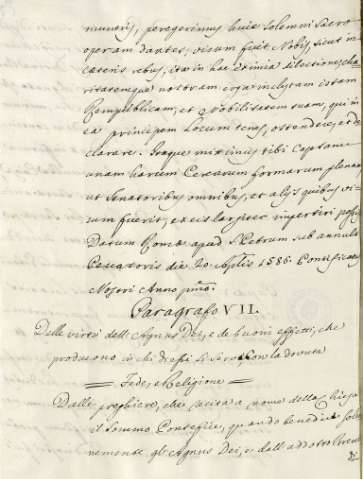 muneris, peregerimus huic solemni sacro
operam dantes, visum fuit Nobis, sicut in
cæteris rebus, ita in hac etiam dilectionem, cha
ritatemque nostram erga inclytam istam
Rempublicam, et Nobilitatem tuam, qui in
ea principem locum tenes, ostendere, et de
clarare. Itaque mittimus tibi Capsam
unam harum Cerearum formarum plenam
ut Senatoribus omnibus, et alijs quibus vi
sum fuerit, ex eis largiter impertiri possis
Datum Romæ apud S. Petrum sub annulo
Piscatoris die 20 Aplis 1586 Pontificatus
Nostri Anno pmo.
Paragrafo VII.
Delle virtù dell' Agnus Dei, e de buoni effetti, che
producono in chi d'essi si serve con la dovuta
Fede, e Religione
Dalle preghiere, che recita a nome della Chiesa
il Sommo Pontefice, quando benedice sole
nemente gli Agnus Dei, e dall' addotto Breve